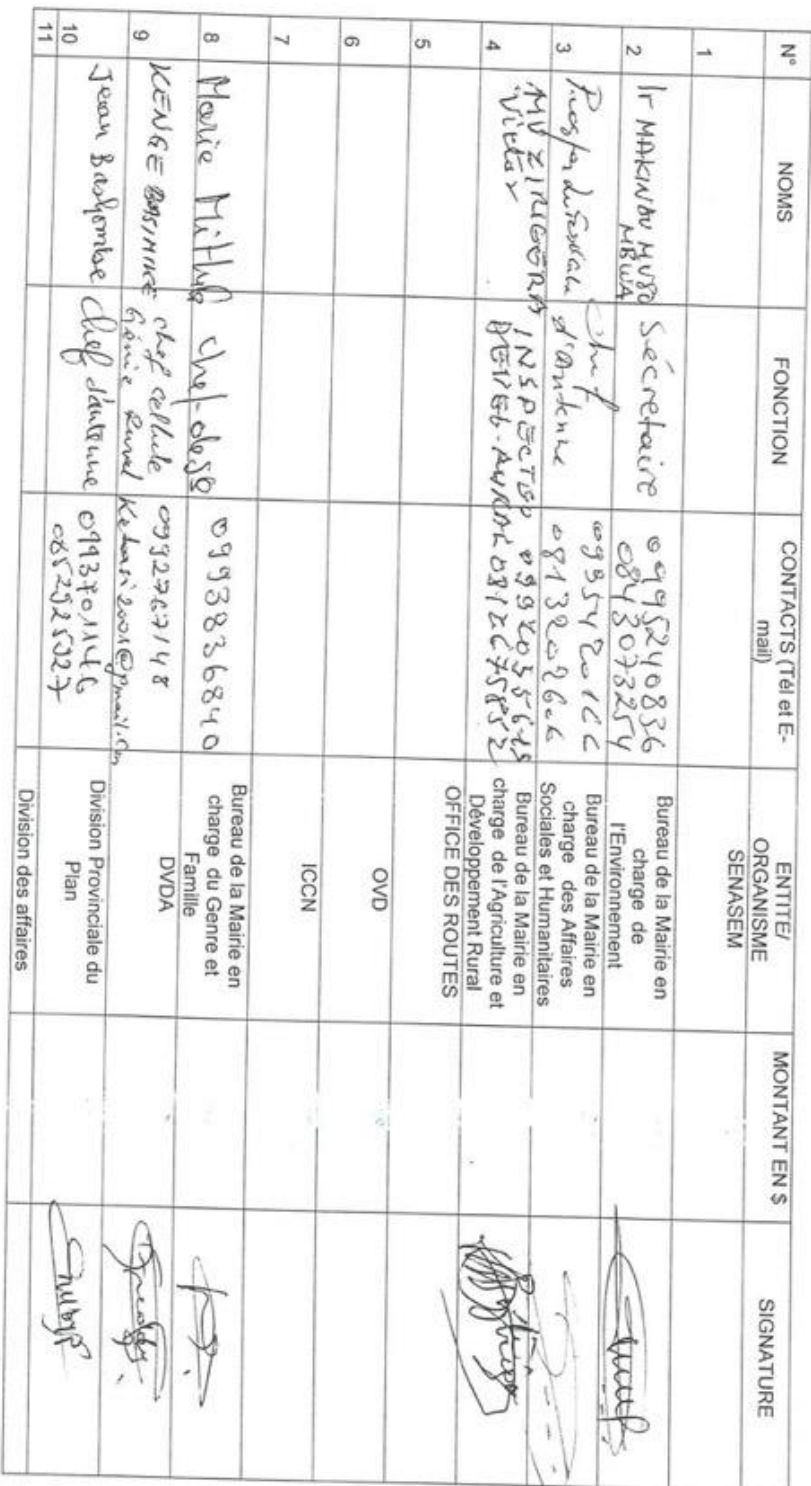 N° NOMS FONCTION CONTACTS (Tél et E-mail) ENTITE/ ORGANISME MONTANT EN $ SIGNATURE
1 SENASEM
2 Ir MAKINDU MUSO
MBWA Sécretaire 0995240836
0843073254 Bureau de la Mairie en
charge de
l'Environnement
3 Chef
d'antenne 0813202606 Bureau de la Mairie en
charge des Affaires
Sociales et Humanitaires
4 MUZIRIGERA
Victor INSPECTEU Bureau de la Mairie en
charge de l'Agriculture et
Développement Rural
5 OFFICE DES ROUTES
6 OVD
7 ICCN
8 Marie 0993836840 Bureau de la Mairie en
charge du Genre et
Famille
9 KENGE BASIMIKE chef cellule
Génie Rural 0992767148
Kebasi2001@gmail.Com DVDA
10 Jean Bashombe Chef d'antenne 0993701146
0852925927 Division Provinciale du
Plan
11 Division des affaires